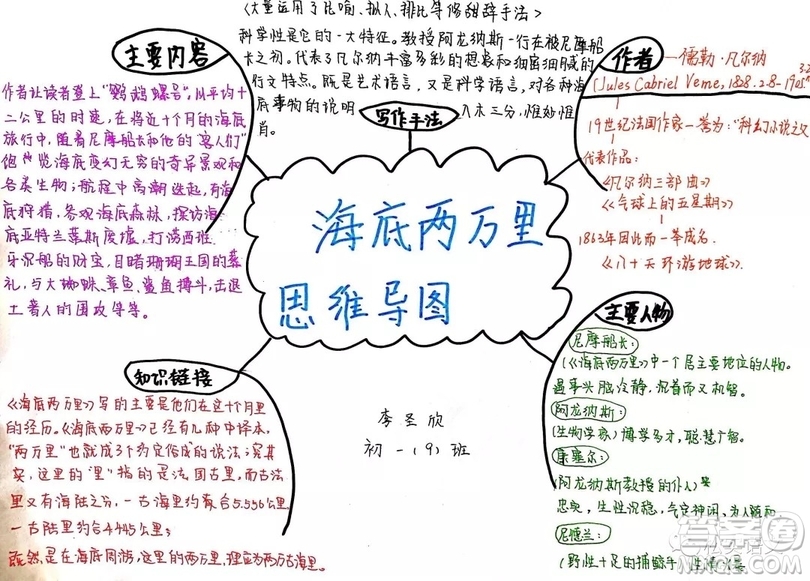 海底两万里
思维导图
李圣欣
初一(9)班
主要内容
作者让读者登上“鹦鹉螺号”,以平均十
二公里的时速,在将近十个月的海底
旅行中,随着尼摩船长和他的“客人们”
饱览海底变幻无穷的奇异景观和
各类生物;航程中高潮迭起,有海
底狩猎,参观海底森林,探访海
底亚特兰蒂斯废墟,打捞西班
牙沉船的财宝,目睹珊瑚王国的葬
礼,与大蜘蛛、章鱼、鲨鱼搏斗,击退
土著人的围攻等等。
写作手法
〈大量运用了比喻、拟人、排比等修辞手法〉
科学性是它的一大特征。教授阿龙纳斯一行在被尼摩船
长之初。代表了凡尔纳丰富多彩的想象和细密细腻的
行文特点。既是艺术语言,又是科学语言,对各种海
底事物的说明入木三分,惟妙惟
肖。
作者
儒勒·凡尔纳
(Jules Gabriel Verne,1828.2.8-1905
19世纪法国作家一誉为:“科幻小说之父
代表作品:
《凡尔纳三部曲》
《气球上的五星期》
1863年因此而一举成名.
《八十天环游地球》.
主要人物
尼摩船长:
(《海底两万里》中一个居主要地位的人物。
遇事头脑冷静,沉着而又机智。
阿龙纳斯:
(生物学家)博学多才,聪慧广智。
康塞尔:
(阿龙纳斯教授的仆人)
忠实,生性沉稳,气定神闲,为人随和
尼德兰:
(野性十足的捕鲸手
知识链接
《海底两万里》写的主要是他们在这十个月里
的经历。《海底两万里》已经有几种中译本,
“两万里”也就成了约定俗成的说法;究其
实,这里的“里”指的是法国古里,而古法
里又有海陆之分,一古海里约合5.556公里
一古陆里约合4.445公里;
既然是在海底周游,这里的两万里,理应为两万古海里。
答案圈